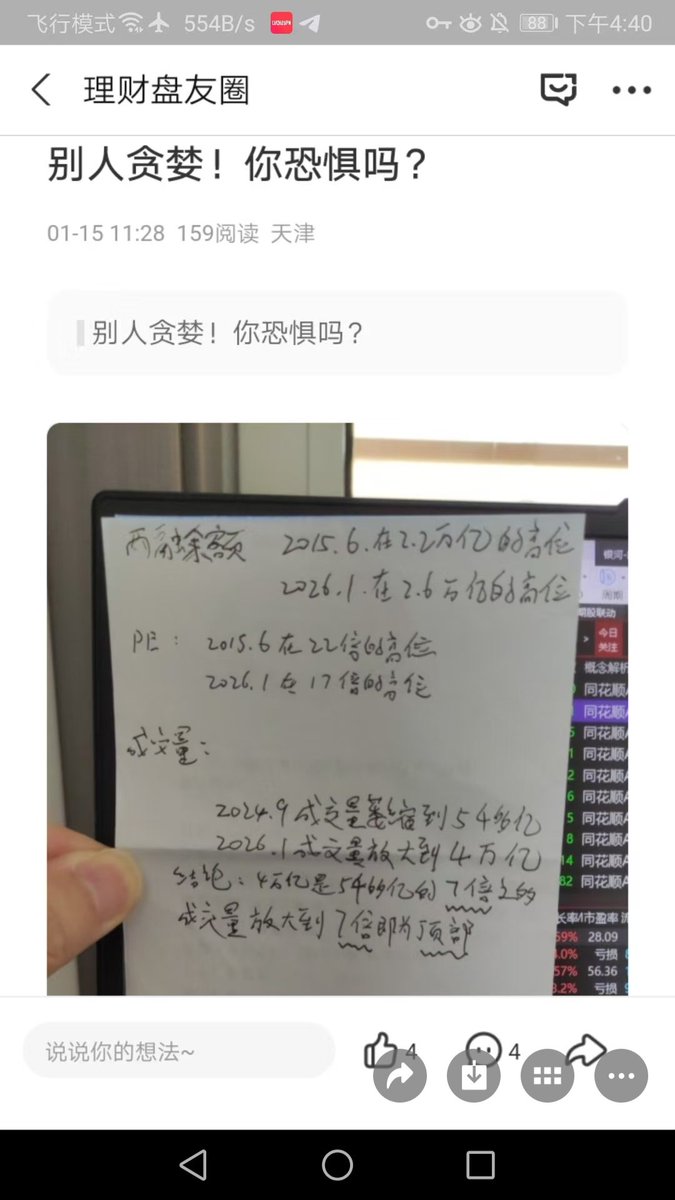 飞行模式 554B/s 88 下午4:40
理财盘友圈
别人贪婪！你恐惧吗？
01-15 11:28 159阅读 天津
别人贪婪！你恐惧吗？
两融余额 2015.6.在2.2万亿的高位
2026.1.在2.6万亿的高位
PE： 2015.6在22倍的高位
2026.1在17倍的高位
成交量：
2024.9成交量萎缩到5466亿
2026.1成交量放大到4万亿
结论：4万亿是5466亿的7倍之的
成交量放大到7倍即为顶部
银河-
周期
期股联动
今日
关注
概念解析
同花顺
同花顺
同花顺
同花顺
同花顺
同花顺
同花顺
同花顺
14 同花顺
82 同花顺
长率 市盈率
59% 28.09
4.0% 亏损
57% 56.36
3.2% 亏损
说说你的想法~
4
4